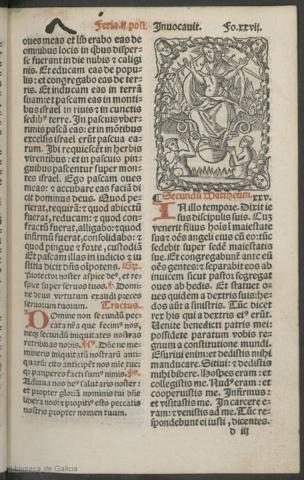 Feria .ij. post. Inuocauit. Fo.xxvij.
oues meas et liberabo eas de
omnibus locis in qbus disper-
se fuerant in die nubis ⁊ caligi
nis. Et educam eas de popu-
lis: et congregabo eas de ter-
ris. Et inducam eas in terrā
suam: et pascam eas in monti-
bus israel in riuis ⁊ in cunctis
sedibꝰ terre. In pascuis vber-
rimis pascā eas: et in mōtibus
excelsis israel erūt pascua ea-
rum. Ibi requiescēt in herbis
virentibus: et in pascuis pin-
guibus pascentur super mon-
tes israel. Ego pascam oues
meas: ⁊ accubare eas faciā di-
cit dominus deus. Quod pe-
rierat, requirā: ⁊ quod abiectū
fuerat, reducam: ⁊ quod con-
fractū fuerat, alligabo: ⁊ quod
infirmū fuerat, consolidabo: ⁊
quod pingue ⁊ forte, custodiā
Et pascam illas in iudicio ⁊ iu
stitia dicit dn̄s oīpotens.
Protector noster aspice deꝰ, et re-
spice super seruos tuos. Domi-
ne deus virtutum exaudi preces
seruorum tuorum. Tractus.
Domine non secundū pec-
cata nr̄a que fecimꝰ nos,
neqꝫ secundū iniquitates nostras
retribuas nobis. Dn̄e ne me-
mineris iniquitatū nostrarū anti-
quarū: cito anticipēt nos mīe tue:
qꝛ pauperes facti sumꝰ nimis.
Adiuua nos deꝰ salutaris noster:
et propter gloriā nominis tui dn̄e
libera nos: ⁊ propitiꝰ esto peccatis
nostris propter nomen tuum.
Secundū Mattheum. xxv.
In illo tempore. Dixit ie
sus discipulis suis. Cuꝫ
venerit filius hoīs ī maiestate
sua: ⁊ oēs angeli eius cū eo: tūc
sedebit super sedē maiestatis
sue. Et congregabunt̄ ante eū
oēs gentes: ⁊ separabit eos ab
inuicem sicut pastor segregat
oues ab hedis. Et statuet o-
ues quidem a dextris suis: he-
dos aūt a sinistris. Tūc dicet
rex his qui a dextris eiꝰ erūt.
Uenite benedicti patris mei:
possidete paratum vobis re-
gnum a constitutione mundi.
Esuriui enim: ⁊ dedistis mihi
manducare. Sitiui: ⁊ dedistis
mihi bibere. Hospes eram: et
collegistis me. Nudꝰ eram: et
cooperuistis me. Infirmus:
et visitastis me. In carcere e-
ram: ⁊ venistis ad me. Tūc re-
spondebunt ei iusti, dicentes.
d iij
Biblioteca de Galicia